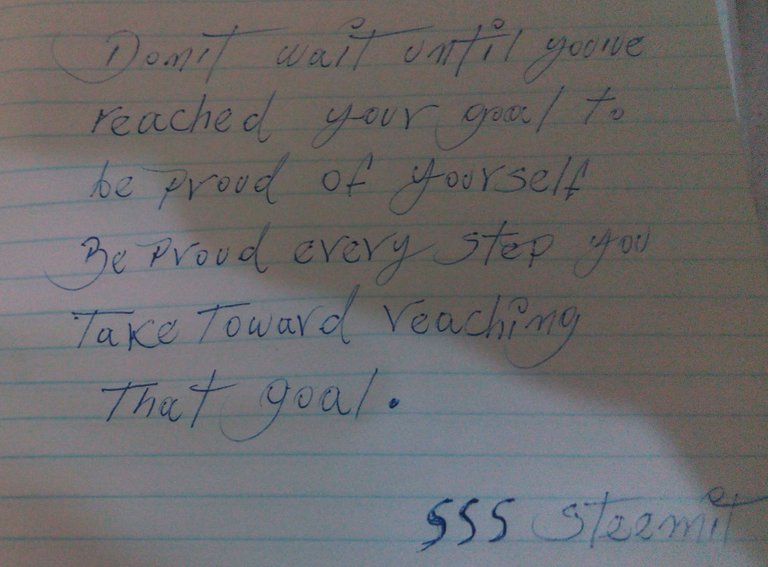 Don't wait until you've
reached your goal to
be proud of yourself
Be proud every step you
Take Toward reaching
That goal.
SSS steemit